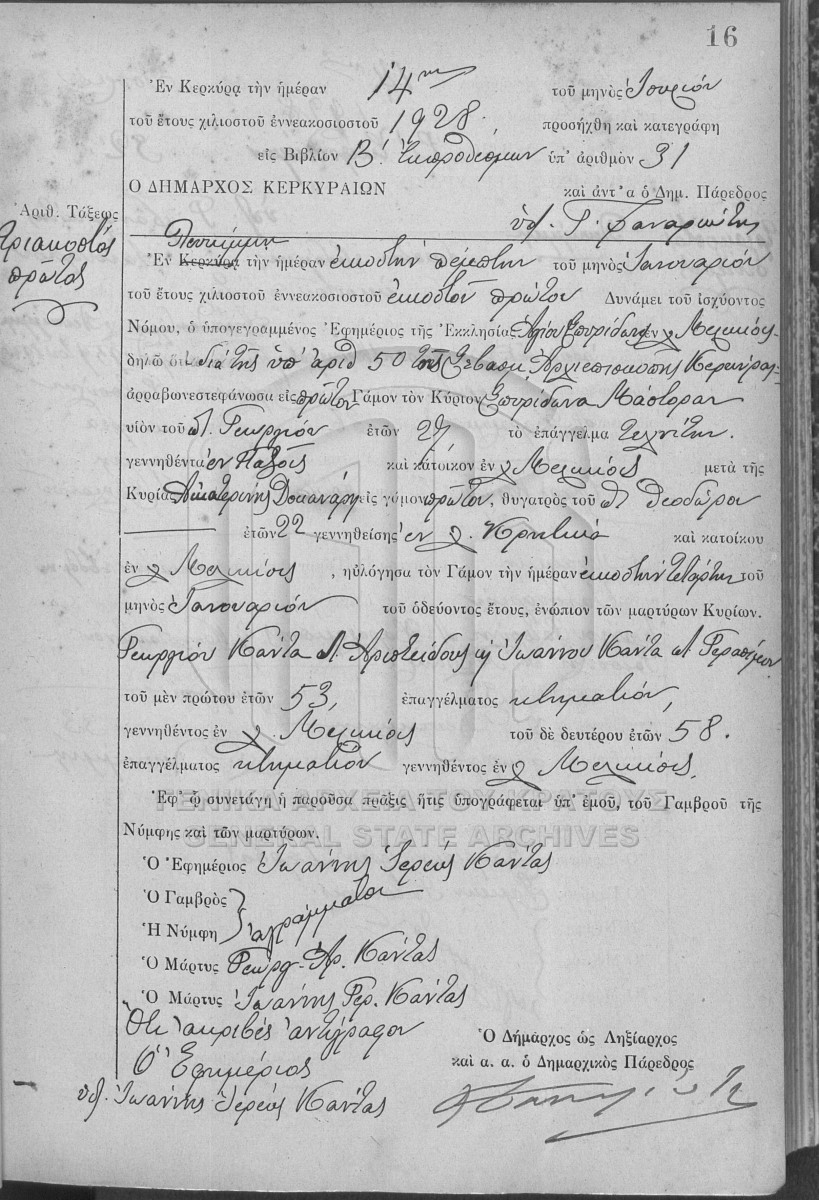 16
Ἐν Κερκύρᾳ τὴν ἡμέραν 14ην τοῦ μηνὸς Ἰουνίου
τοῦ ἔτους χιλιοστοῦ ἐννεακοσιοστοῦ 1928, προσήχθη καὶ κατεγράφη
εἰς Βιβλίον Β! Ἐκπροθέσμων ὑπ' ἀριθμὸν 31
Ο ΔΗΜΑΡΧΟΣ ΚΕΡΚΥΡΑΙΩΝ καὶ ἀντ' α ὁ Δημ. Πάρεδρος
Ἀριθ. Τάξεως ὑπ. Γ. Φαναριώτης
τριακοστὸς
πρῶτος
Ἐν Κερκύρᾳ τὴν ἡμέραν εἰκοστὴν πέμπτην τοῦ μηνὸς Ἰανουαρίου
τοῦ ἔτους χιλιοστοῦ ἐννεακοσιοστοῦ εἰκοστοῦ πρώτου Δυνάμει τοῦ ἰσχύοντος
Νόμου, ὁ ὑπογεγραμμένος Ἐφημέριος τῆς Ἐκκλησίας Ἁγίου Σπυρίδωνος ἐν χ. Μελικίοις
δηλῶ ὅτι διὰ τῆς ὑπ' ἀριθ 50 τῆς Σεβασμ. Ἀρχιεπισκοπῆς Κερκύρας
ἀρραβωνεστεφάνωσα εἰς πρῶτον Γάμον τὸν Κύριον Σπυρίδωνα Μάστοραν
υἱὸν τοῦ π. Γεωργίου ἐτῶν 27 τὸ ἐπάγγελμα τεχνίτην.
γεννηθέντα ἐν Παξοῖς καὶ κάτοικον ἐν χ. Μελικίοις μετὰ τῆς
Κυρίας Αἰκατερίνης εἰς γάμον πρῶτον, θυγατρὸς τοῦ π. Θεοδώρου
ἐτῶν 22 γεννηθείσης ἐν χ. Κρητικὰ καὶ κατοίκου
ἐν χ. Μελικίοις, ηὐλόγησα τὸν Γάμον τὴν ἡμέραν εἰκοστὴν τετάρτην τοῦ
μηνὸς Ἰανουαρίου τοῦ ὁδεύοντος ἔτους, ἐνώπιον τῶν μαρτύρων Κυρίων.
Γεωργίου Κάντα π. Ἀριστείδους κ Ἰωάννου Κάντα π. Γερασίμου
τοῦ μὲν πρώτου ἐτῶν 53, ἐπαγγέλματος κτηματίου,
γεννηθέντος ἐν χ. Μελικίοις τοῦ δὲ δευτέρου ἐτῶν 58.
ἐπαγγέλματος κτηματίου γεννηθέντος ἐν χ. Μελικίοις,
Ἐφ' ᾧ συνετάγη ἡ παροῦσα πρᾶξις ἥτις ὑπογράφεται ὑπ' ἐμοῦ, τοῦ Γαμβροῦ τῆς
ΓΕΝΙΚΑ ΑΡΧΕΙΑ ΤΟΥ ΚΡΑΤΟΥΣ
Νύμφης καὶ τῶν μαρτύρων.
GENERAL STATE ARCHIVES
Ὁ Ἐφημέριος Ἰωάννης Ἱερεὺς Κάντας
Ὁ Γαμβρὸς
Ἡ Νύμφη ἀγράμματοι
Ὁ Μάρτυς Γεώργ. Ἀρ. Κάντας
Ὁ Μάρτυς Ἰωάννης Γερ. Κάντας
Ὅτι ἀκριβὲς ἀντίγραφον
Ὁ Δήμαρχος ὡς Ληξίαρχος
Ὁ Ἐφημέριος καὶ α. α. ὁ Δημαρχικὸς Πάρεδρος
ὑπ. Ἰωάννης Ἱερεὺς Κάντας